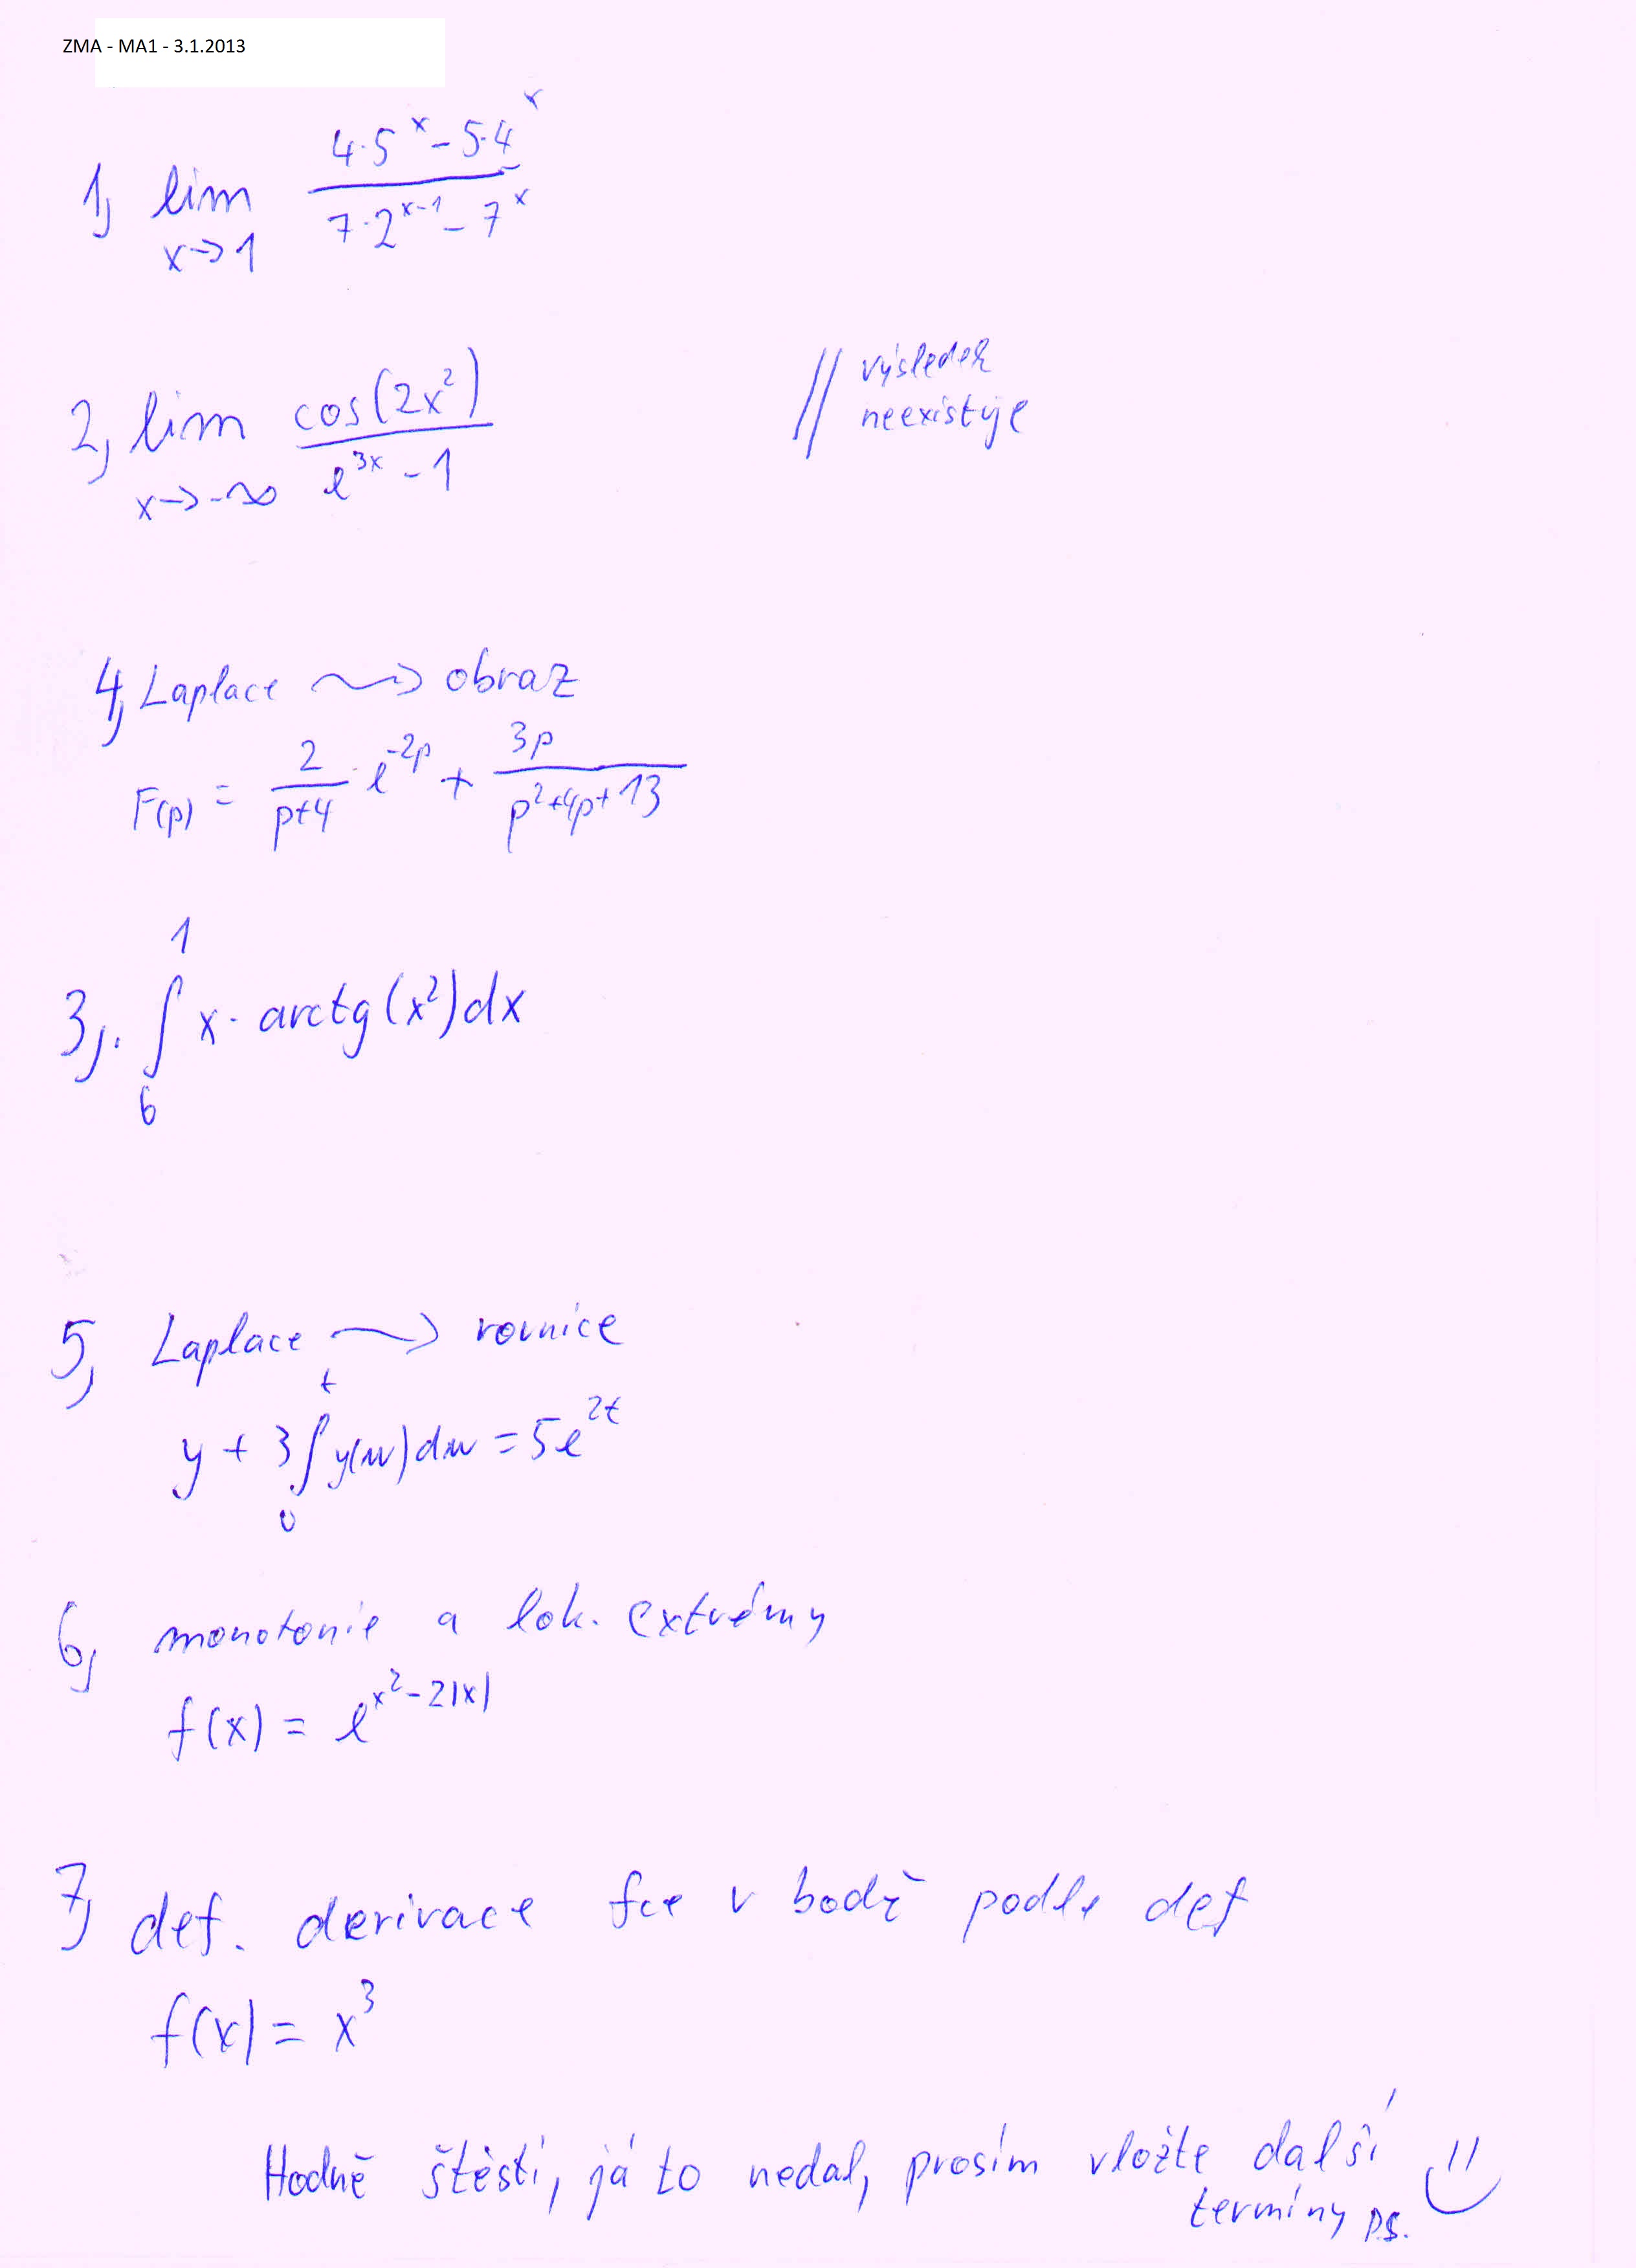 ZMA - MA1 - 3.1.2013
1, lim x→1 (4·5^x - 5·4^x) / (7·2^(x-1) - 7^x)
2, lim x→-∞ cos(2x²) / (e^(3x) - 1) // výsledek
neexistuje
4, Laplace → obraz
F(p) = 2/(p+4) · e^(-2p) + 3p/(p²+4p+13)
3,. ∫_6^1 x · arctg(x²)dx
5, Laplace → rovnice
y + 3∫_0^t y(u)du = 5e^(2t)
6, monotonie a lok. extrémy
f(x) = e^(x²-2|x|)
7, def. derivace fce v bodě podle def
f(x) = x³
Hodně štěstí, já to nedal, prosím vložte další
termíny ps.